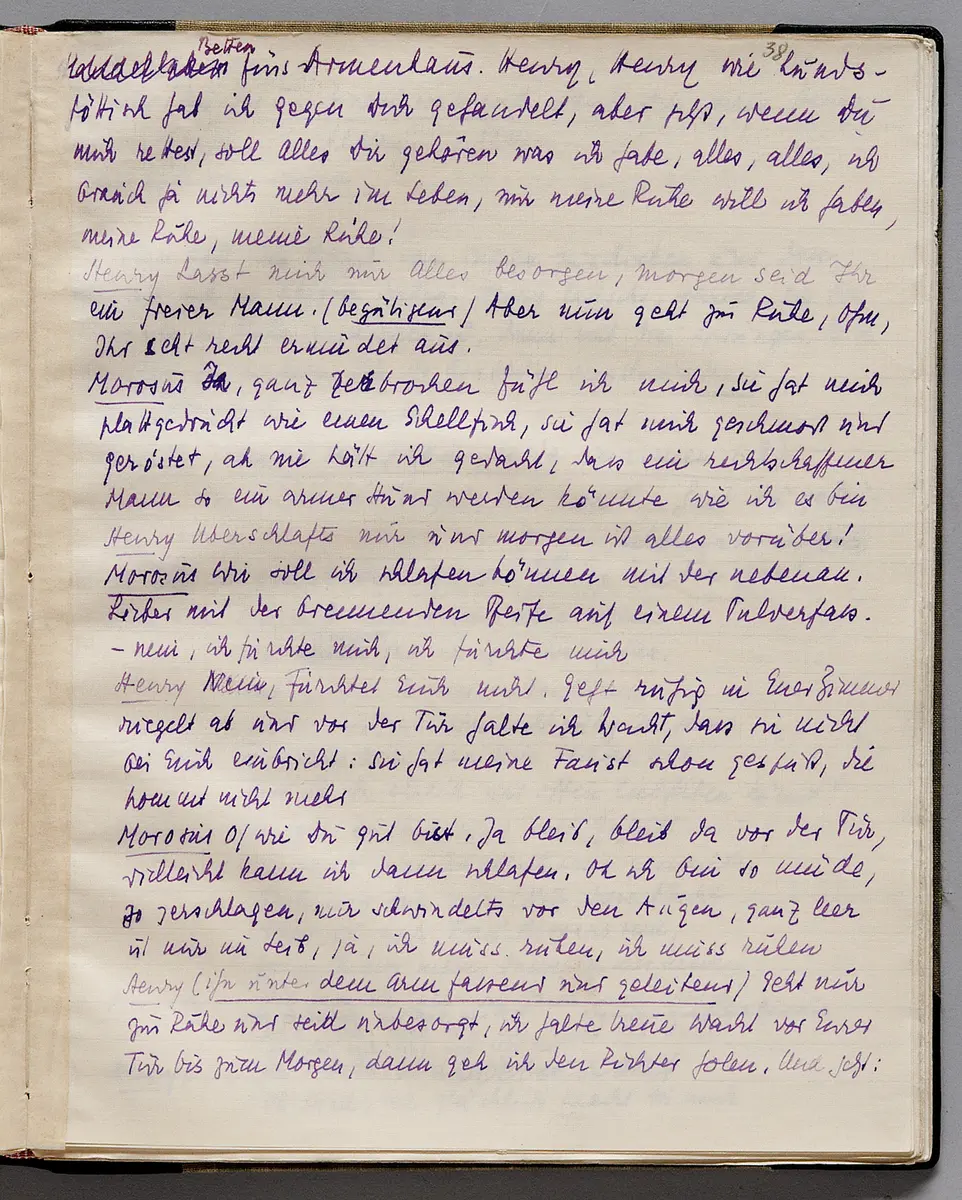 38
Betten
fürs Armenhaus. Henry, Henry wie hunds-
föttisch hab ich gegen Dich gehandelt, aber jetzt, wenn Du
mich rettest, soll Alles Dir gehören was ich habe, alles, alles, ich
brauch ja nichts mehr im Leben, nur meine Ruhe will ich haben,
meine Ruhe, meine Ruhe!
Henry Lasst mich nur Alles besorgen, morgen seid Ihr
ein freier Mann. (begütigend) Aber nun geht zur Ruhe, Ohm,
Ihr seht recht ermüdet aus.
Morosus Ja, ganz zerbrochen fühl ich mich, sie hat mich
plattgedrückt wie einen Schellfisch, sie hat mich geschmort und
geröstet, ah nie hätt ich gedacht, dass ein rechtschaffener
Mann so ein armer Hund werden könnte wie ich es bin
Henry Überschlafts nur und morgen ist alles vorüber!
Morosus Wie soll ich schlafen können mit der nebenan.
Lieber mit der brennenden Pfeife auf einem Pulverfass.
– nein, ich fürchte mich, ich fürchte mich
Henry Nein, Fürchtet Euch nicht. Geht ruhig in Euer Zimmer
riegelt ab und vor der Tür halte ich Wacht, dass sie nicht
bei Euch einbricht: sie hat meine Faust schon gespürt, die
kommt nicht mehr
Morosus Oh wie Du gut bist. Ja bleib, bleib da vor der Tür,
vielleicht kann ich dann schlafen. Oh ich bin so müde,
so zerschlagen, mir schwindelts vor den Augen, ganz leer
ist mir im Leib, ja, ich muss ruhen, ich muss ruhen
Henry (ihn unter dem Arm fassend und geleitend) Geht nur
zur Ruhe und seid unbesorgt, ich halte treue Wacht vor Eurer
Tür bis zum Morgen, dann geh ich den Richter holen. Und jetzt: